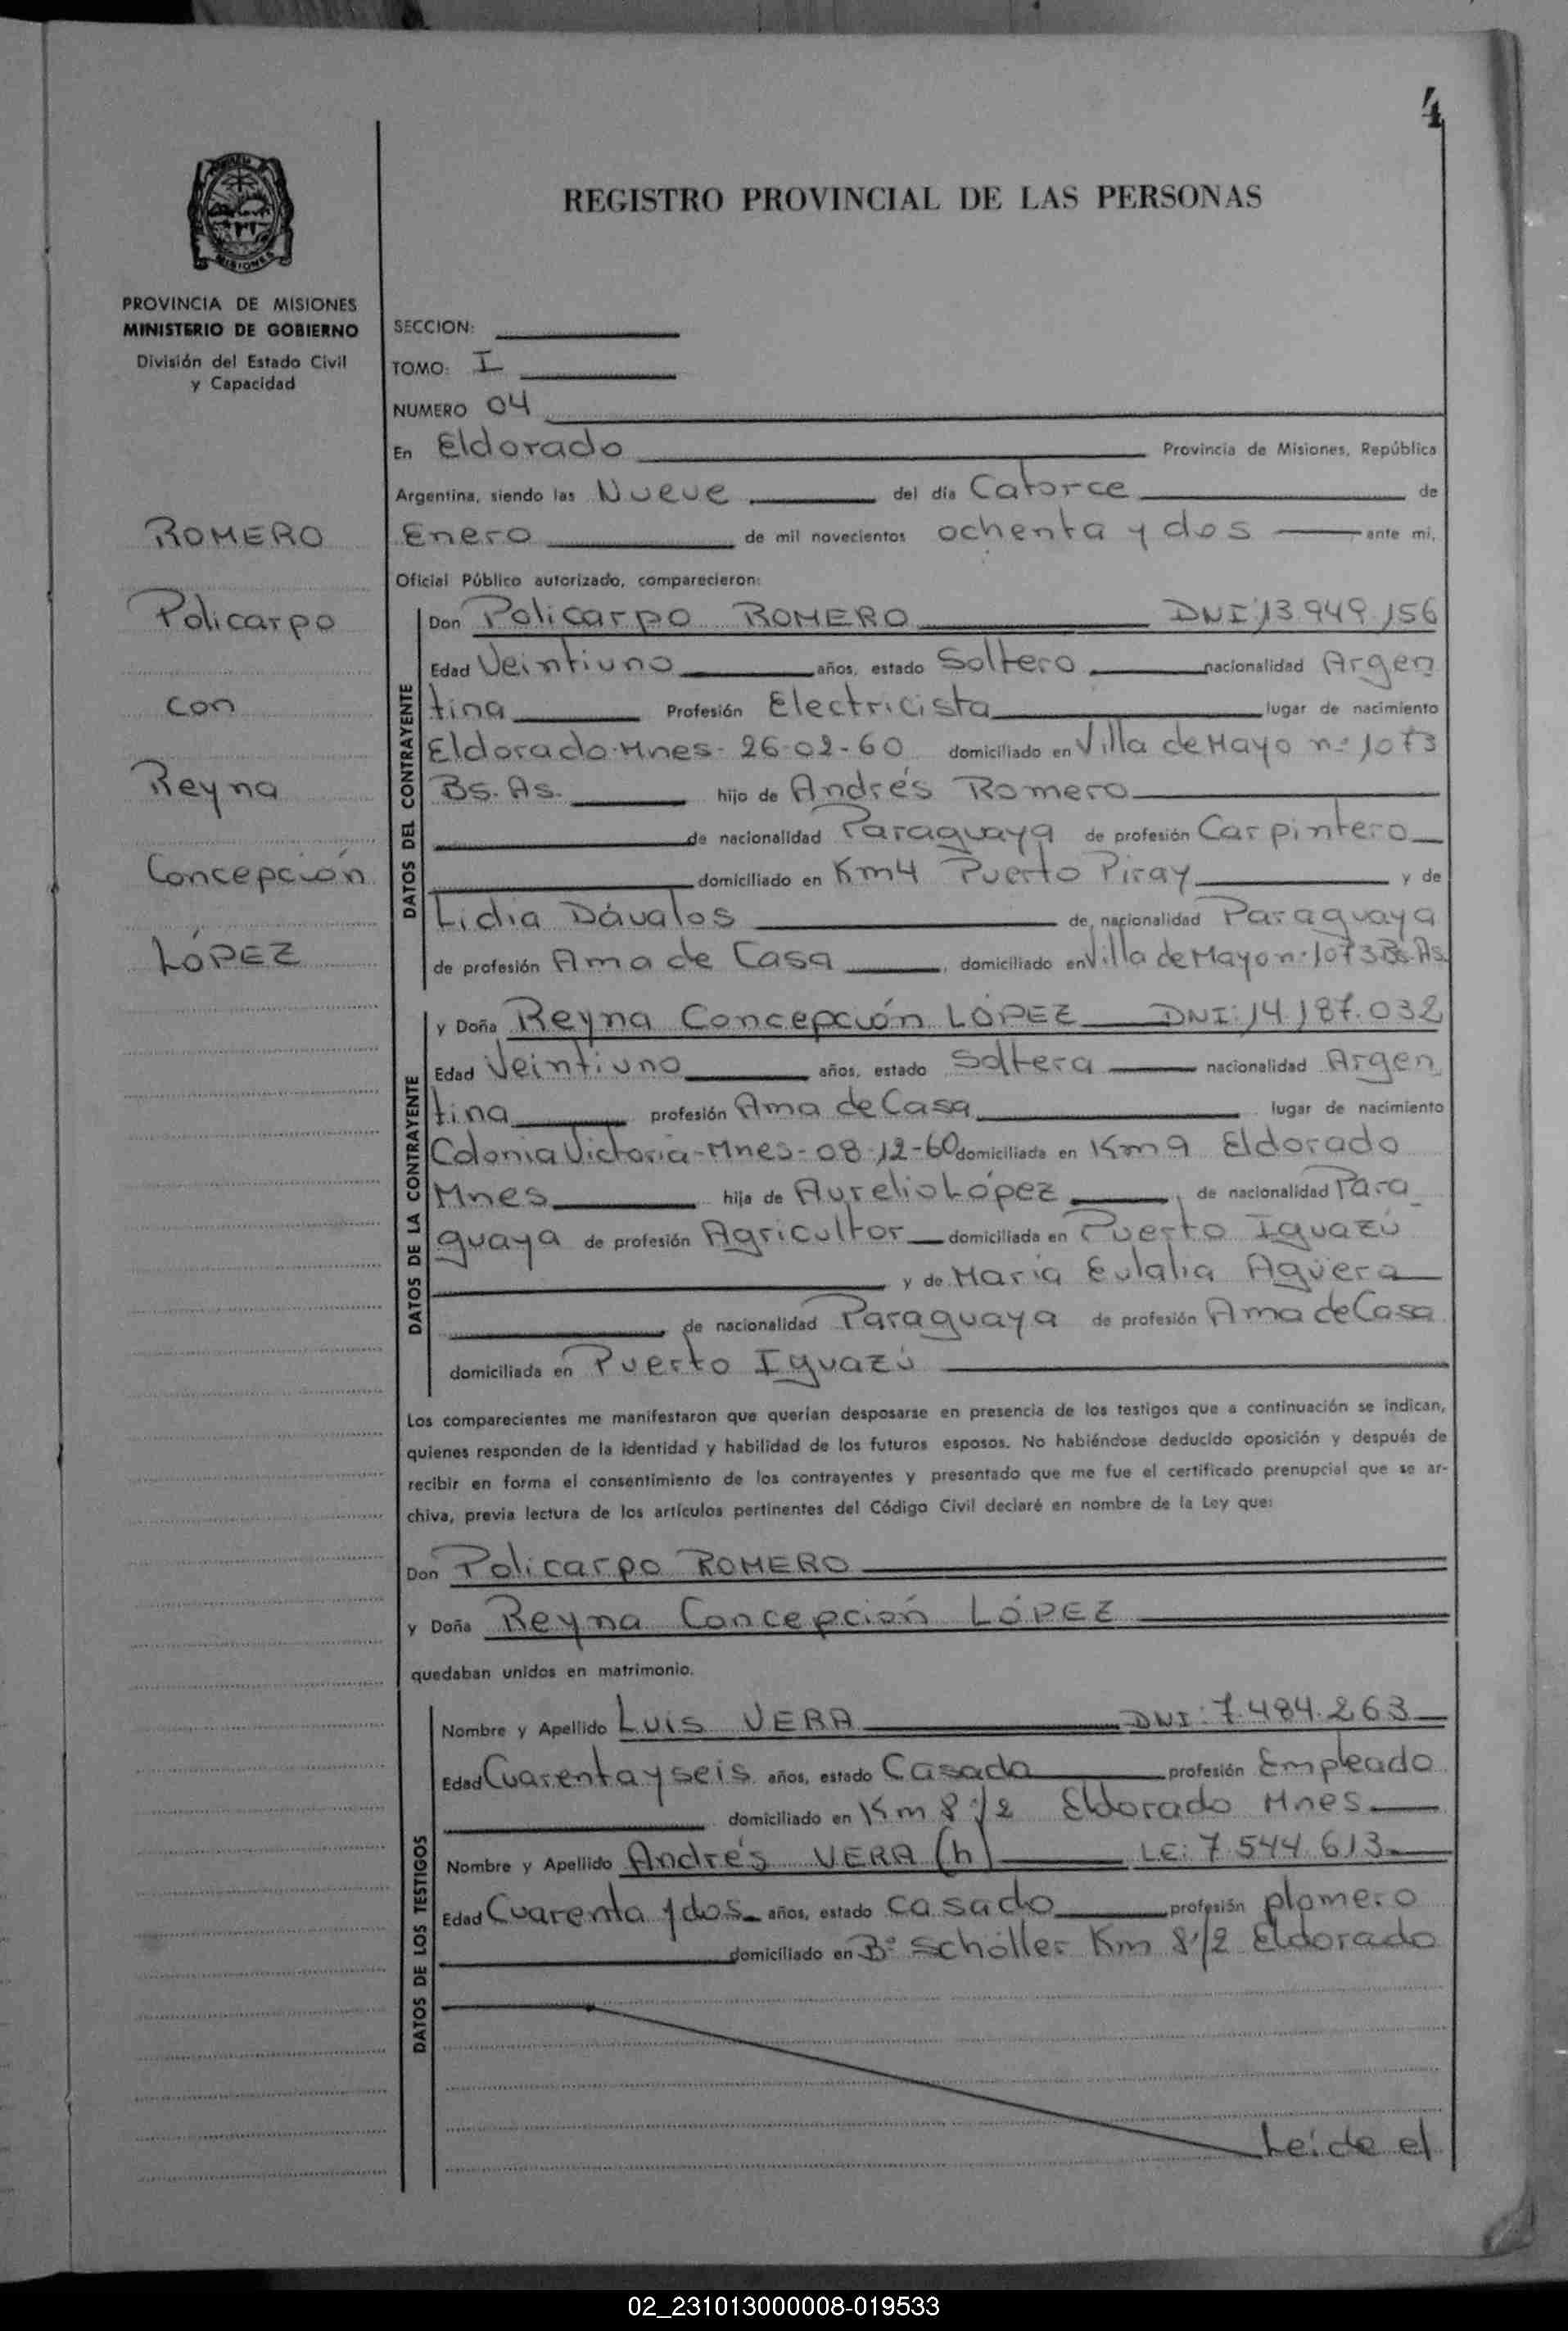 4
REGISTRO PROVINCIAL DE LAS PERSONAS
MISIONES
PROVINCIA DE MISIONES
MINISTERIO DE GOBIERNO
División del Estado Civil
y Capacidad
ROMERO
Policarpo
con
Reyna
Concepción
LÓPEZ
SECCION:
TOMO: I
NUMERO 04
En Eldorado Provincia de Misiones, República
Argentina, siendo las Nueve del día Catorce de
Enero de mil novecientos ochenta y dos ante mí,
Oficial Público autorizado, comparecieron:
DATOS DEL CONTRAYENTE
Don Policarpo ROMERO DNI:13.949.156
Edad Veintiuno años, estado Soltero nacionalidad Argen
tina Profesión Electricista lugar de nacimiento
Eldorado-Mnes- 26-02-60 domiciliado en Villa de Mayo nº 1073
Bs. As. hijo de Andrés Romero
de nacionalidad Paraguaya de profesión Carpintero
domiciliado en Km4 Puerto Piray y de
Lidia Dávalos de nacionalidad Paraguaya
de profesión Ama de Casa, domiciliado en Villa de Mayo nº 1073 Bs. As.
DATOS DE LA CONTRAYENTE
y Doña Reyna Concepción LÓPEZ DNI:14.187.032
Edad Veintiuno años, estado Soltera nacionalidad Argen
tina profesión Ama de Casa lugar de nacimiento
Colonia Victoria-Mnes- 08-12-60 domiciliada en Km 9 Eldorado
Mnes hija de Aurelio López, de nacionalidad Para
guaya de profesión Agricultor domiciliada en Puerto Iguazú
y de María Eulalia Agüera
de nacionalidad Paraguaya de profesión Ama de Casa
domiciliada en Puerto Iguazú
Los comparecientes me manifestaron que querían desposarse en presencia de los testigos que a continuación se indican,
quienes responden de la identidad y habilidad de los futuros esposos. No habiéndose deducido oposición y después de
recibir en forma el consentimiento de los contrayentes y presentado que me fue el certificado prenupcial que se ar-
chiva, previa lectura de los artículos pertinentes del Código Civil declaré en nombre de la Ley que:
Don Policarpo ROMERO
y Doña Reyna Concepción LÓPEZ
quedaban unidos en matrimonio.
DATOS DE LOS TESTIGOS
Nombre y Apellido Luis VERA DNI: 7.484.263
Edad Cuarenta y seis años, estado Casado profesión Empleado
domiciliado en Km 8 1/2 Eldorado Mnes
Nombre y Apellido Andrés VERA (h) LE: 7.544.613
Edad Cuarenta y dos años, estado casado profesión plomero
domiciliado en Bº Schöller Km 8 1/2 Eldorado
Leíde el
02_231013000008-019533